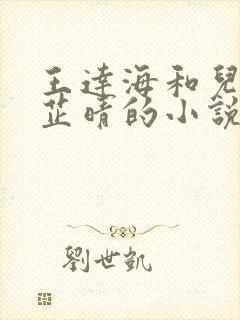 王達海和兒
芷晴的小說
劉世凱